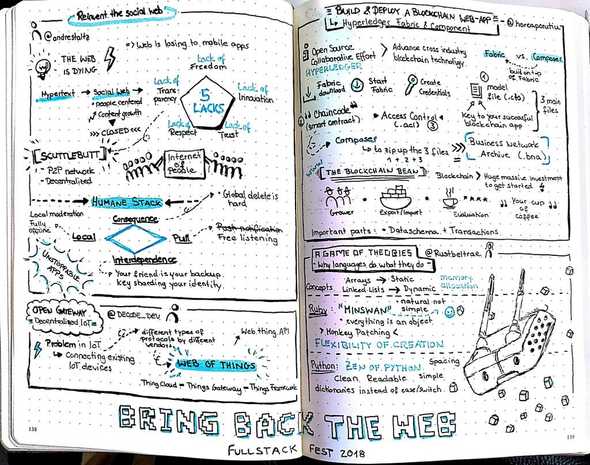 Reinvent the social web
@andrestaltz
THE WEB IS DYING
=> Web is losing to mobile apps
Hypertext → Social Web
→ people centered
→ Content growth
>>> CLOSED <<<
5 LACKS
Lack of Freedom
Lack of Innovation
Lack of Trust
Lack of Respect
Lack of Transparency
[SCUTTLEBUTT]
- P2P network
- Decentralized
Internet of People
HUMANE STACK
Local moderation
Fully offline
Consequence
Local
Pull
Interdependence
Global delete is hard
Push notification
Free listening
UNSTOPPABLE APPS
Your friend is your backup
key sharding your identity
OPEN GATEWAY
Decentralized IoT
@DECODE_DEV
Problem in IoT
→ different types of protocols by different vendors
→ Connecting existing IoT devices
Web thing API
WEB OF THINGS
Thing Cloud - Things Gateway - Things Framework
138
= BUILD & DEPLOY A BLOCKCHAIN WEB-APP =
↳ Hyperledger Fabric & Component
@horeaporutiu
Open Source
Collaborative Effort
HYPERLEDGER
> Advance cross industry blockchain technology
Fabric vs. Composer
built on top of Fabric
Fabric download
Start Fabric
Create Credentials
model file (.cto)
3 main files
Chaincode (smart contract)
> Access Control (.acl)
Key to your successful blockchain app
Composer
↳ to zip up the 3 files
1 + 2 + 3
Business Network Archive (.bna)
[THE BLOCKCHAIN BEAN]
Blockchain > Huge massive investment to get started
Grower
Export/Import
Evaluation
Your cup of coffee
Important parts: - Dataschema + Transactions
A GAME OF THEORIES
- Why languages do what they do -
@Rustbeltrae
Concepts
Arrays → Static
Linked Lists → Dynamic
memory allocation
Ruby: "MINSWAN"
- natural not simple
- everything is an object
> Monkey Patching <
FLEXIBILITY OF CREATION
Python: ZEN OF PYTHON
Spacing
Clean, Readable, simple
dictionaries instead of case/switch.
139
BRING BACK THE WEB
FULLSTACK FEST 2018